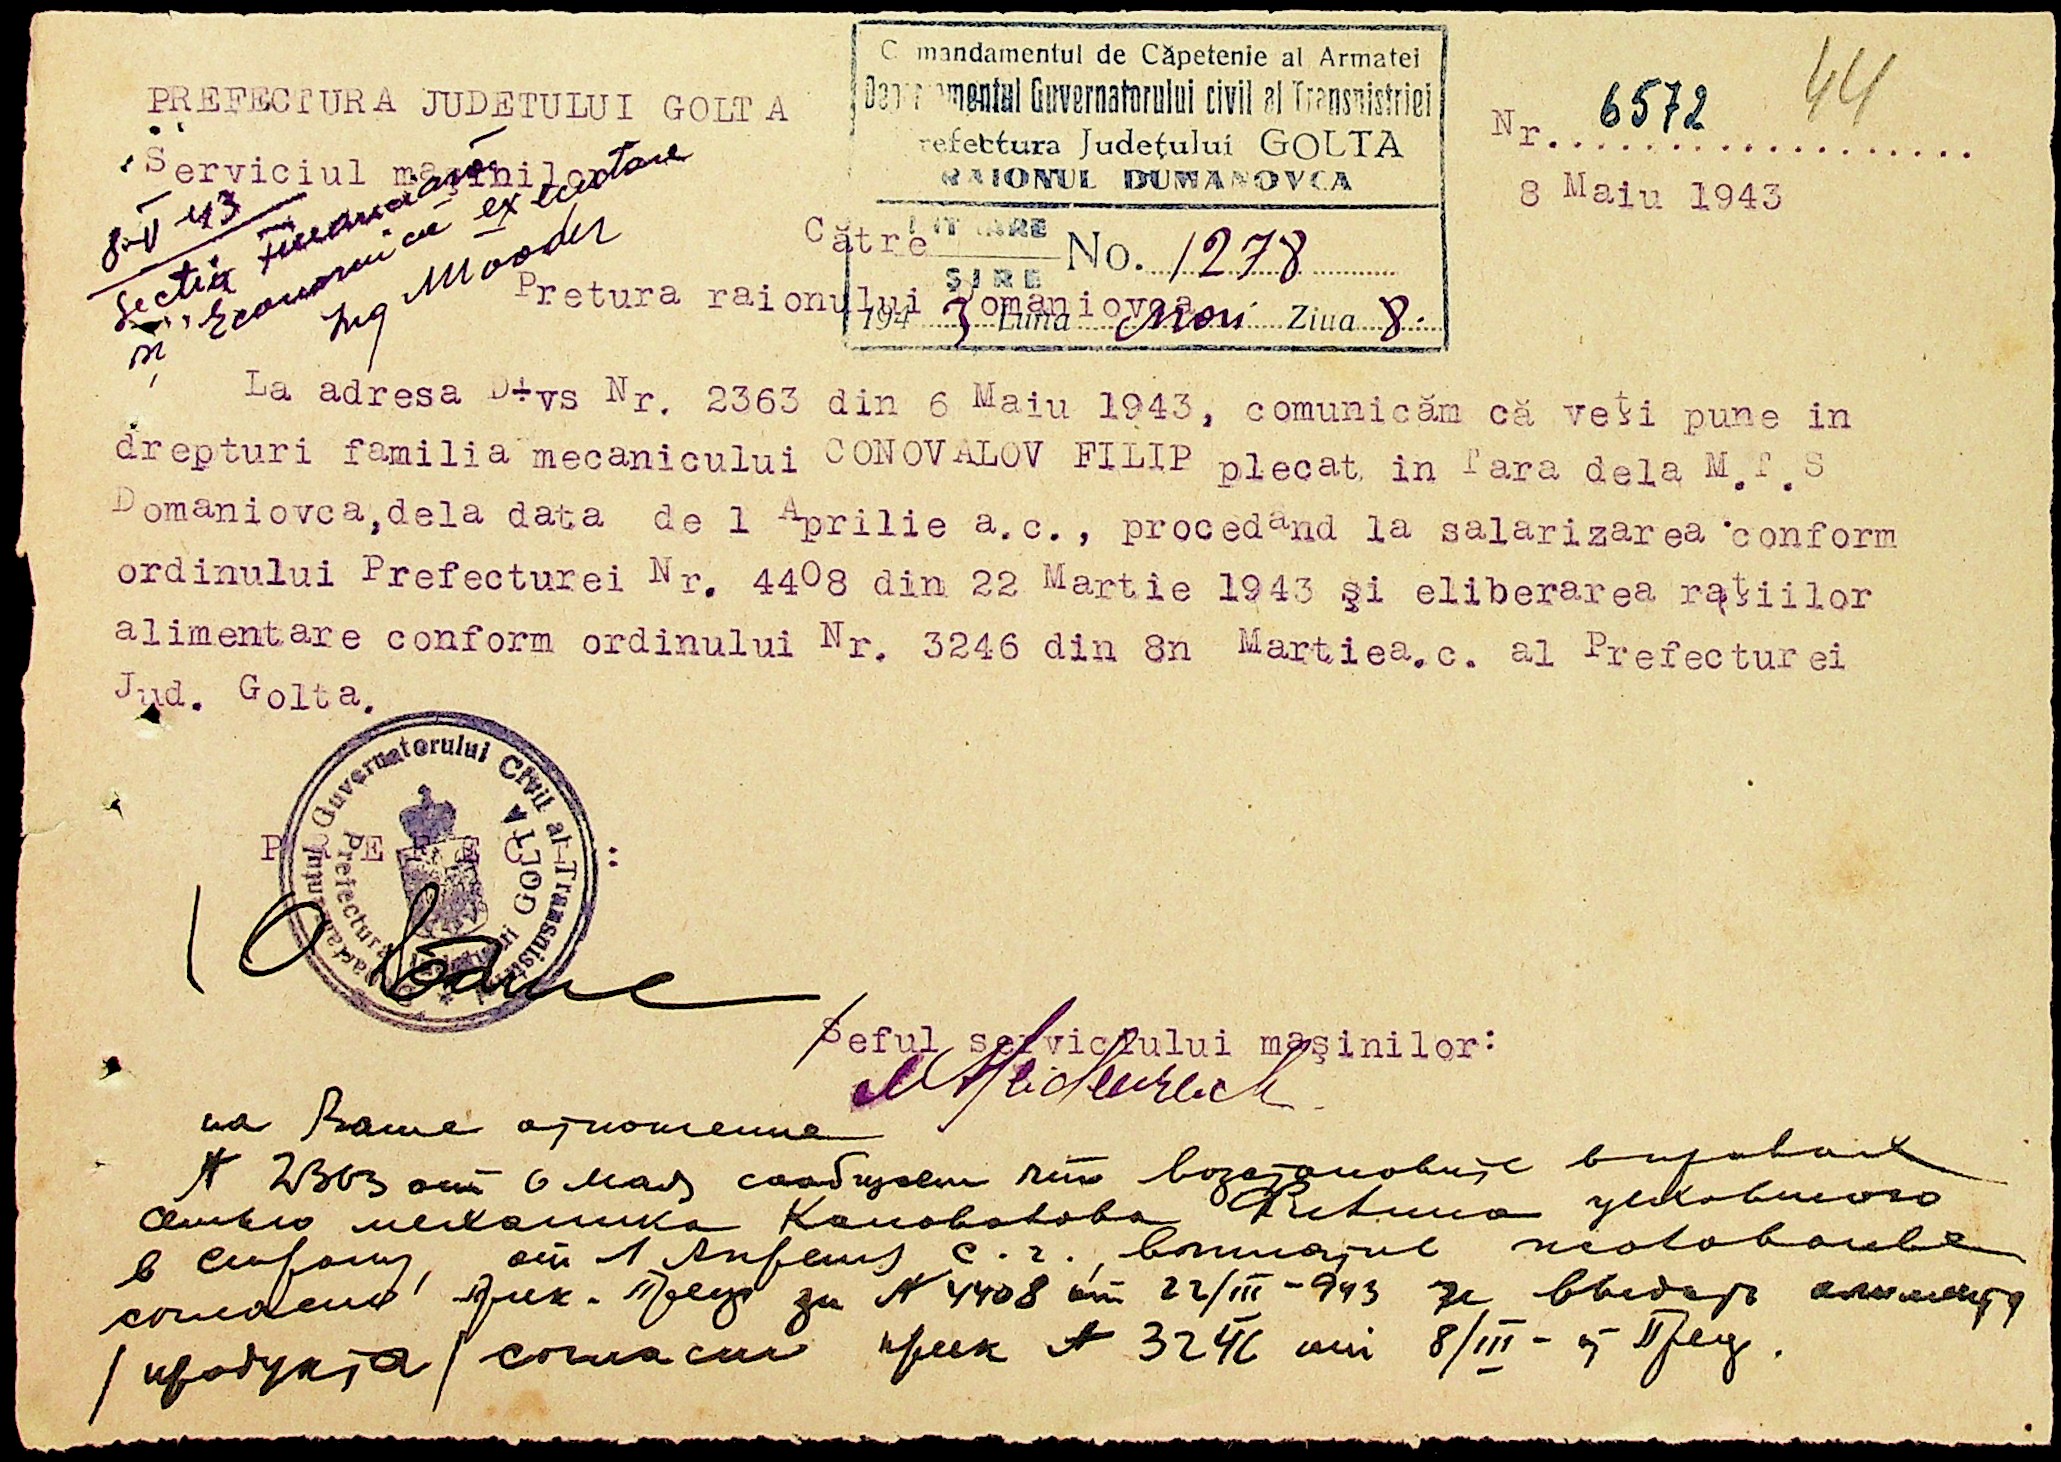 44
Comandamentul de Căpetenie al Armatei
Departamentul Guvernatorului civil al Transnistriei
Prefectura Județului GOLTA
RAIONUL DUMANOVCA
INTRARE
EȘIRE
No. 1278
194 3 Luna Mai Ziua 8.
PREFECTURA JUDETULUI GOLTA
Serviciul maşinilor
Nr. 6572
8 Maiu 1943
8-V 43
Secția Financiară
și Economică executare
Ing
Către
Pretura raionului Domaniovca
La adresa Dvs Nr. 2363 din 6 Maiu 1943, comunicăm că veţi pune in
drepturi familia mecanicului CONOVALOV FILIP plecat in Tara dela M.T.S
Domaniovca,dela data de 1 Aprilie a.c., procedand la salarizarea conform
ordinului Prefecturei Nr. 4408 din 22 Martie 1943 şi eliberarea raţiilor
alimentare conform ordinului Nr. 3246 din 8n Martiea.c. al Prefecturei
Jud. Golta.
PREFECT:
Guvernatorului Civil al Transnistriei
Prefectura GOLTA
Seful serviciului maşinilor:
на Ваше отношение
№ 2363 от 6 мая сообщаем что возстановите в правах
семью механика Коновалова Филипа
в страну, от 1 Апреля с.г., жалованье
согласно прик. Преф за № 4408 от 22/III-943 и выдать
/продукта/ согласно прик № 3246 от 8/III- Преф.